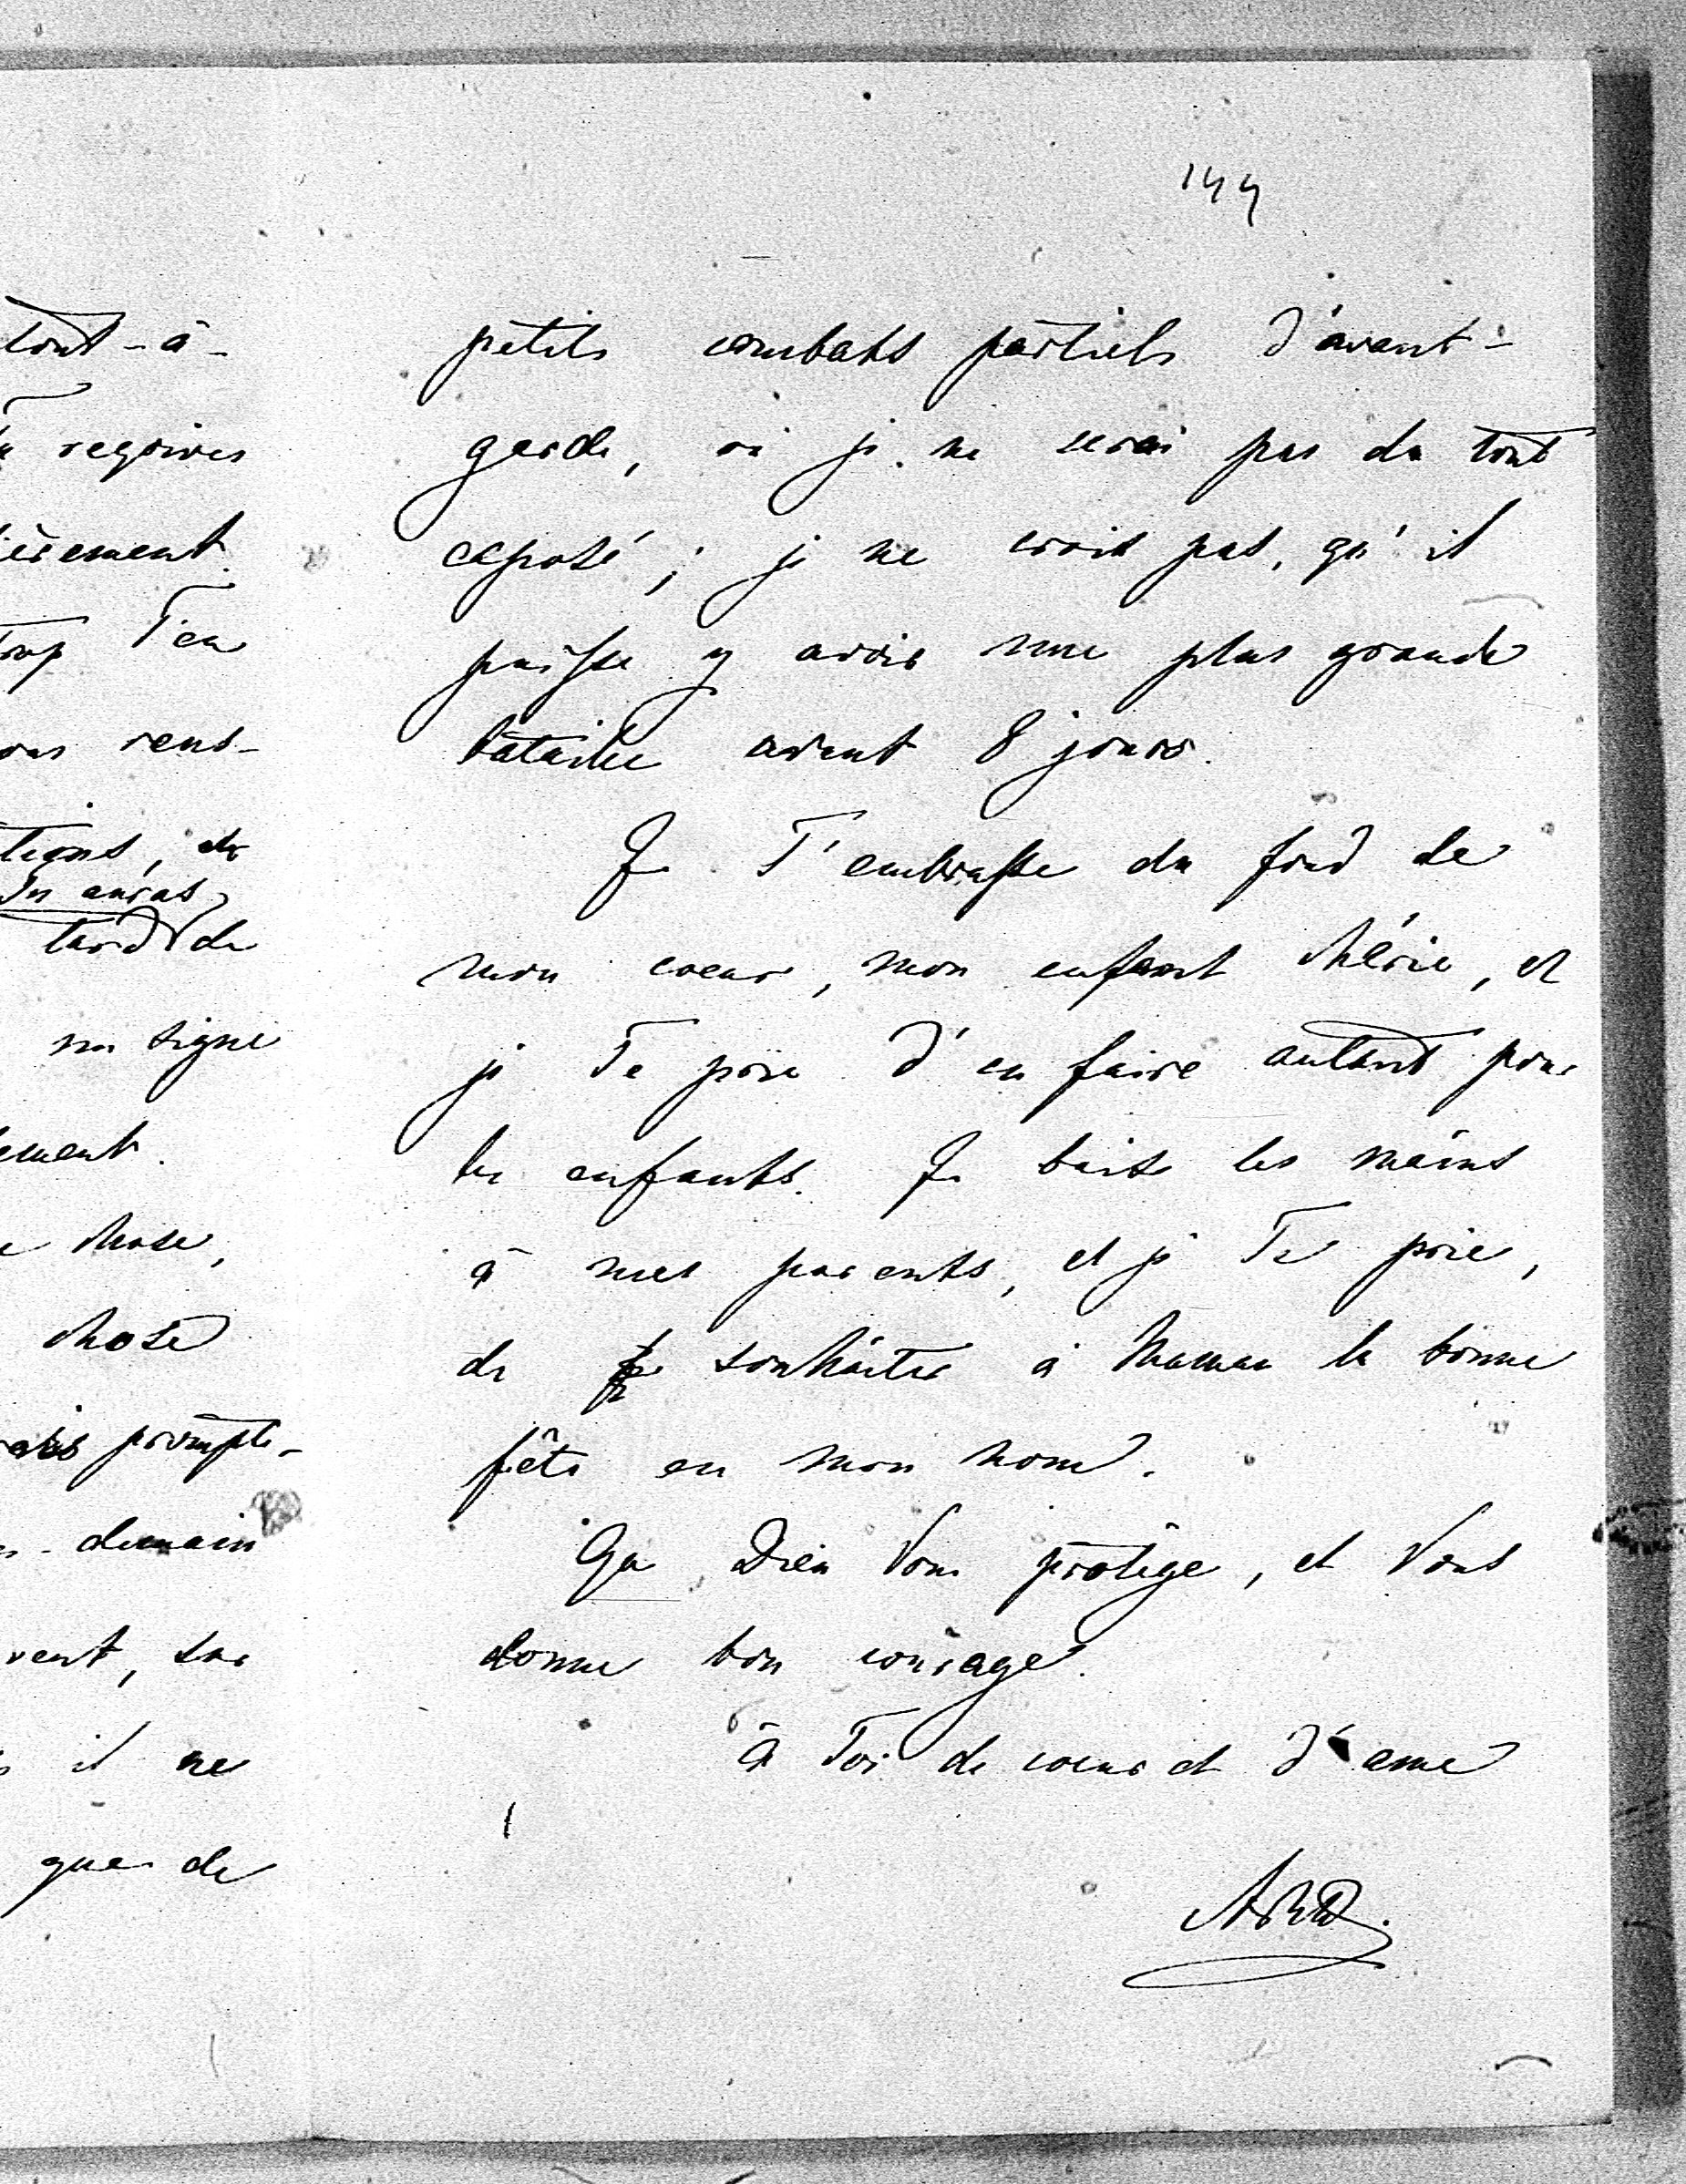 144
tout-à-
reçoives
èrement.
T'en
rens-
tions, de
Tu auras
tard de
un signe
ement.
chose,
chose
prompte-
demain
vent, sur
il ne
que de
petits combats partiels d'avant-
garde, où je ne serai pas du tout
exposé; je ne crois pas, qu'il
puisse y avoir une plus grande
bataille avant 8 jours.
Je T'embrasse du fond de
mon coeur, mon enfant chérie, et
je Te prie d'en faire autant pour
les enfants. Je baise les mains
à mes parents, et je Te prie,
de souhaiter à Maman la bonne
fête en mon nom.
Que Dieu Vous protège, et Vous
donne bon courage.
à Toi de coeur et d'ame